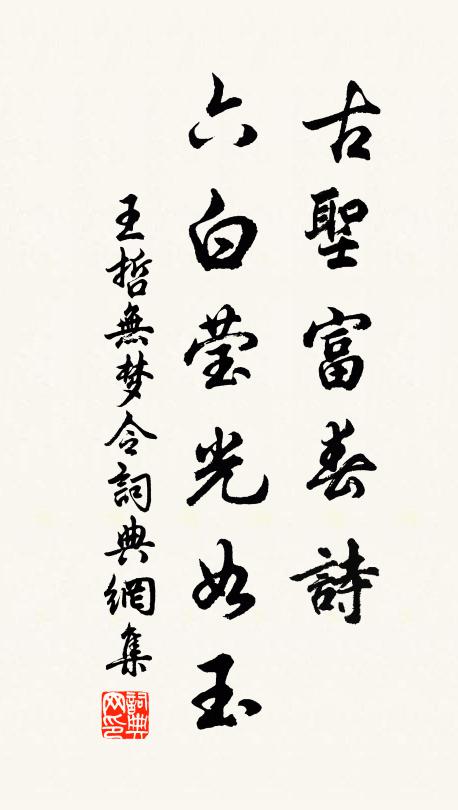 古聖富春詩
六白莹光如玉
王哲無梦令詞典網集
詞典
网印